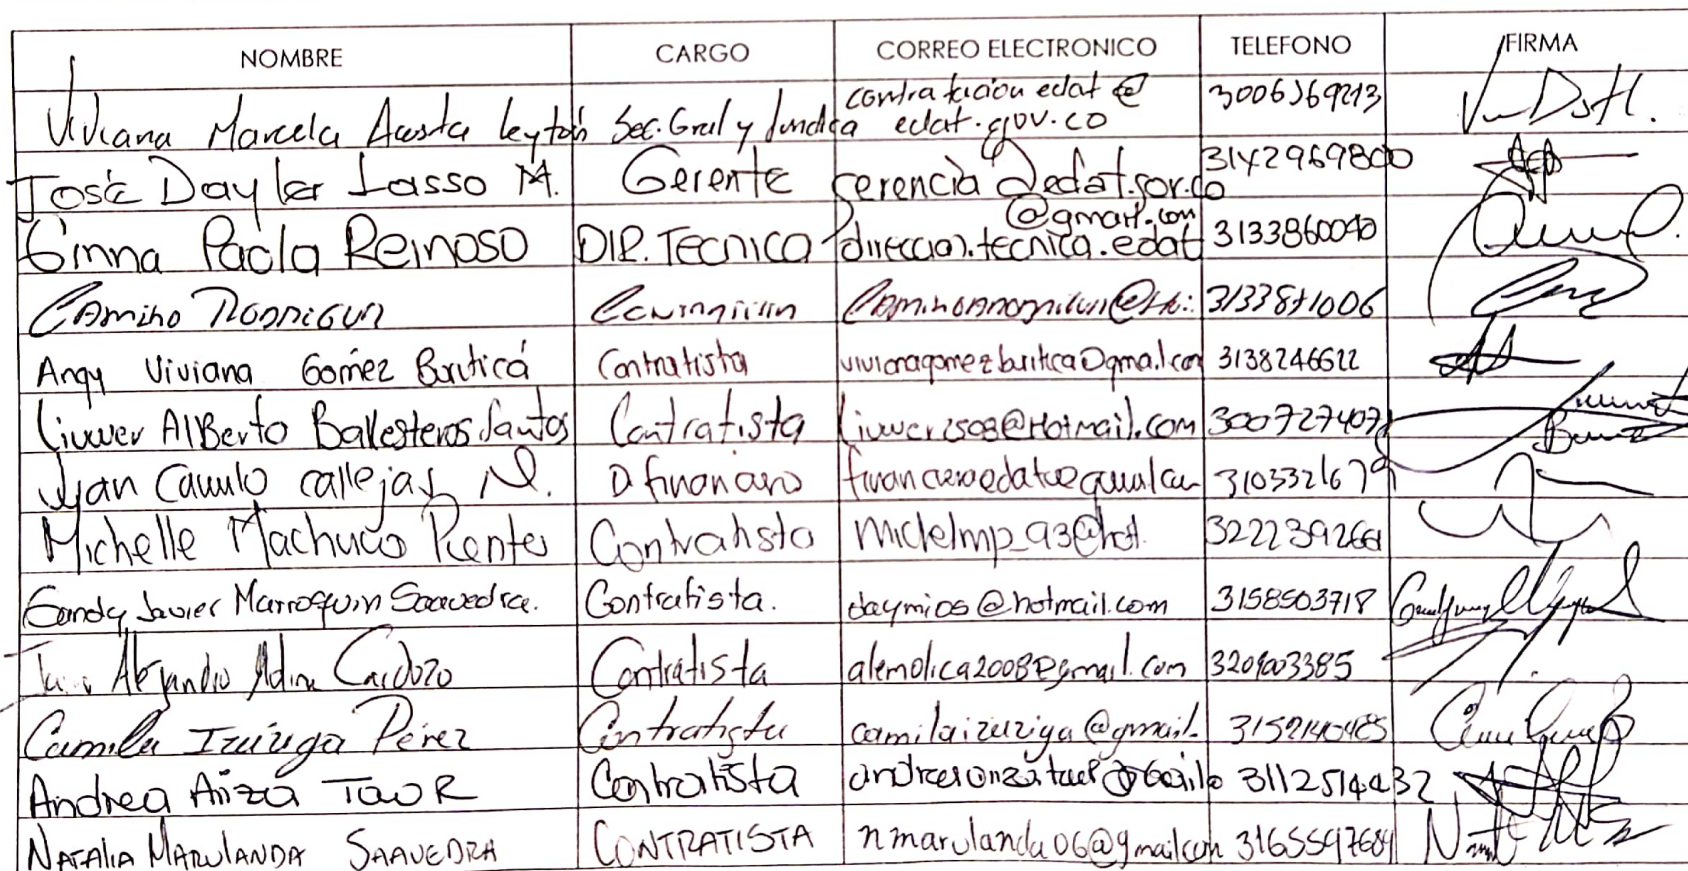 NOMBRE CARGO CORREO ELECTRONICO TELEFONO FIRMA
contratacion edat @
Viviana Marcela Acosta Leytón Sec. Gral y Jurídica edat.gov.co 3006369213
José Dayler Lasso M. Gerente gerencia@edat.gov.co 3142969800
@gmail.com
Ginna Paola Reinoso DIR. TECNICA direccion.tecnica.edat 3133860040
Camino Rodriguez 3133871006
Angy Viviana Gómez Buriticá Contratista vivianagomezburitica@gmail.com 3138246622
Liuwer AlBerto Ballesteros Santos Contratista liuwer2508@Hotmail.com 3007274071
Juan Camilo callejas N. D financiero 3103321679
Michelle Machuco Contratista 3222392661
Sandy Javier Marroquin Saavedra. Contratista. daymios@hotmail.com 3158503718
Alejandro Cardozo Contratista alemolica2008@gmail.com 3209003385
Camila Izuizuga Pérez Contratista camilaizuziga@gmail. 3152140485
Andrea Ariza Contratista 3112514432
NATALIA MARULANDA SAAVEDRA CONTRATISTA nmarulanda06@gmail.com 3165597684